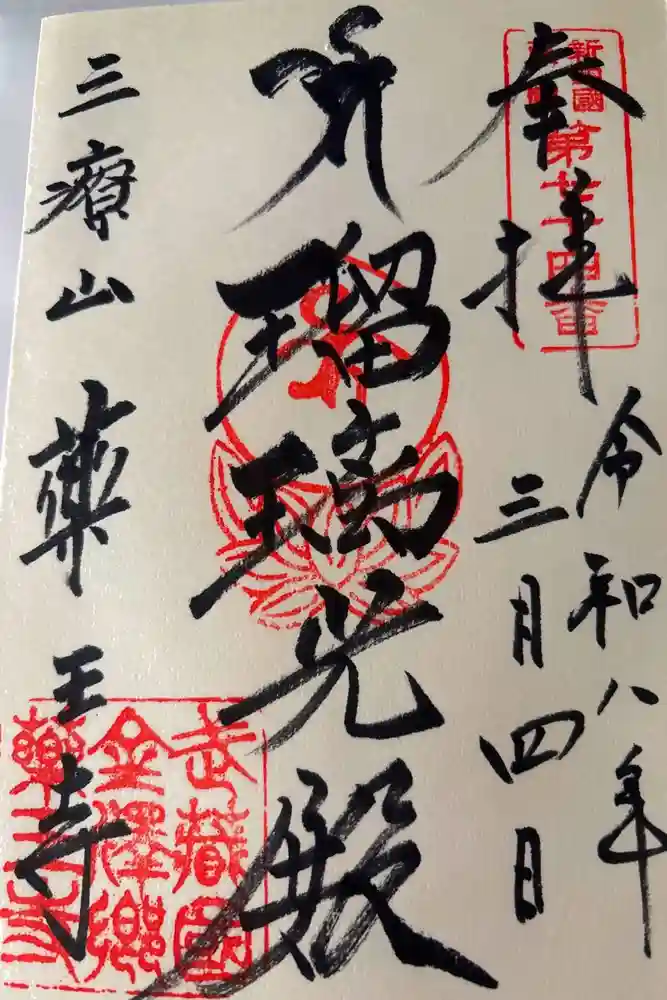 奉拝
第廿四番
令和八年
三月四日
瑠璃光殿
三療山 薬王寺
武蔵国
金澤郷
薬王寺